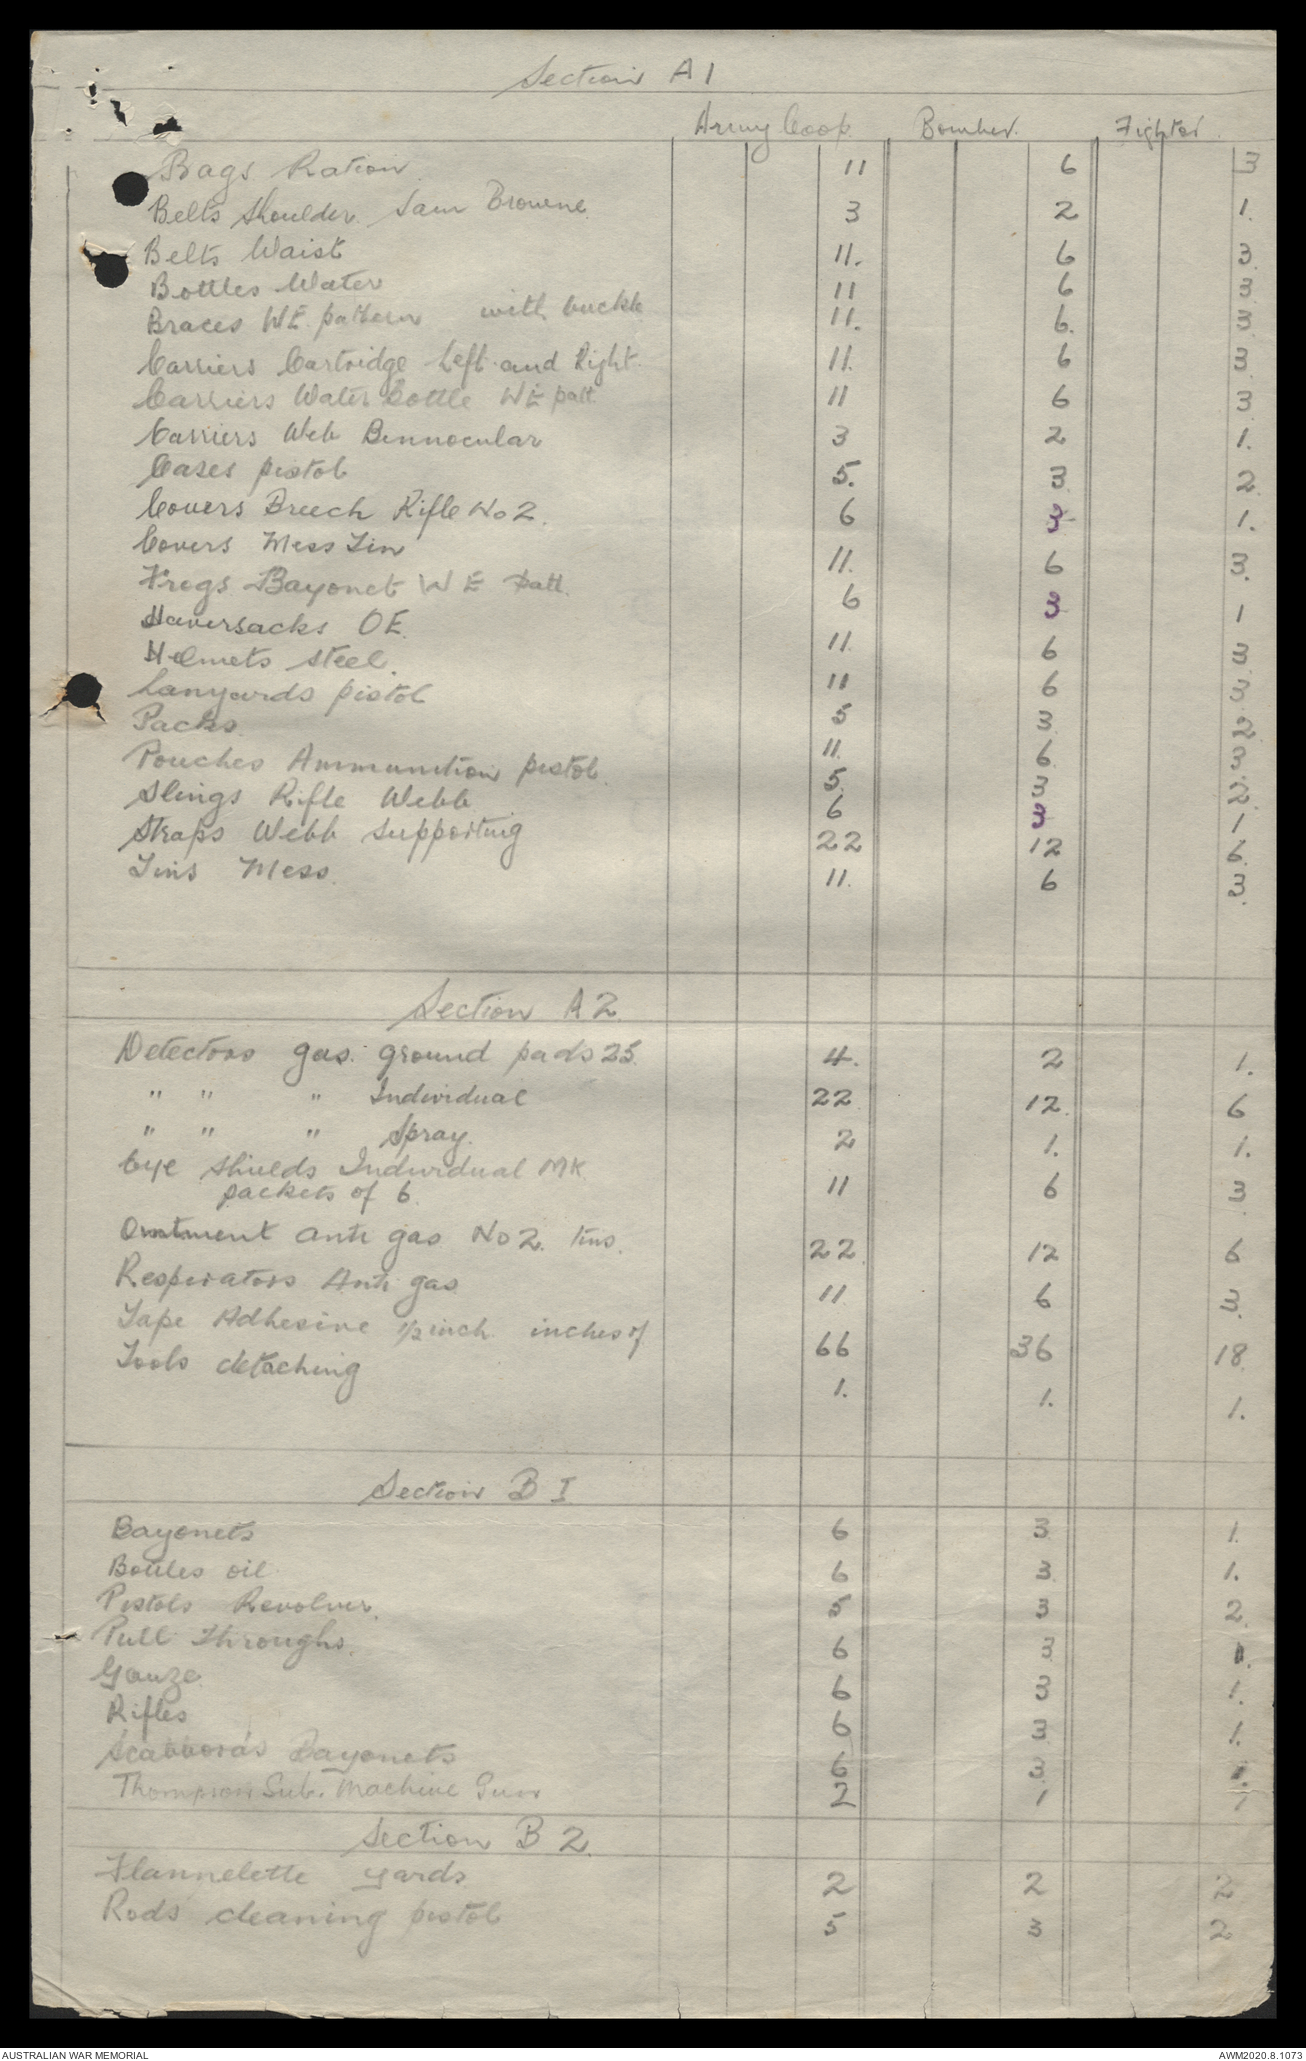 Section A1
Army Coop. Bomber. Fighter.
Bags Ration. 11 6 3
Belts Shoulder. Sam Browne 3 2 1.
Belts Waist 11. 6 3.
Bottles Water 11 6 3.
Braces W.E. pattern with buckle 11. 6. 3.
Carriers Cartridge Left and Right. 11. 6 3.
Carriers Water Bottle W.E patt. 11 6 3.
Carriers Web Binnocular 3 2 1.
Cases pistol 5. 3. 2.
Covers Breech Rifle No 2. 6 3 1.
Covers Mess Tin 11. 6 3.
Frogs Bayonet W E Patt. 6 3 1
Haversacks O.E. 11. 6 3.
Helmets steel. 11 6 3.
Lanyards pistol 5 3. 2.
Packs. 11. 6. 3.
Pouches Ammunition pistol. 5. 3 2.
Slings Rifle Webb 6 3 1
Straps Webb supporting 22 12 6.
Tins Mess. 11. 6 3.
Section A 2.
Detectors gas. ground pads 25. 4. 2 1.
" " " Individual 22 12. 6
" " " Spray. 2 1. 1.
Eye Shields Individual MK
packets of 6. 11 6 3
Ointment anti gas No 2. tins. 22. 12 6
Respirators Anti gas 11 6 3.
Tape Adhesive 1/2 inch. inches of 66 36 18.
Tools detaching 1. 1. 1.
Section B I
Bayonets 6 3 1.
Bottles oil 6 3. 1.
Pistols Revolver. 5 3 2.
Pull Throughs. 6 3. 1.
Gauze. 6 3 1.
Rifles 6 3. 1.
Scabbords Bayonets 6 3. 1.
Thompson Sub. Machine Gun 2 1 1
Section B 2.
Flannelette yards 2 2 2
Rods cleaning pistol 5 3 2
AUSTRALIAN WAR MEMORIAL AWM2020.8.1073